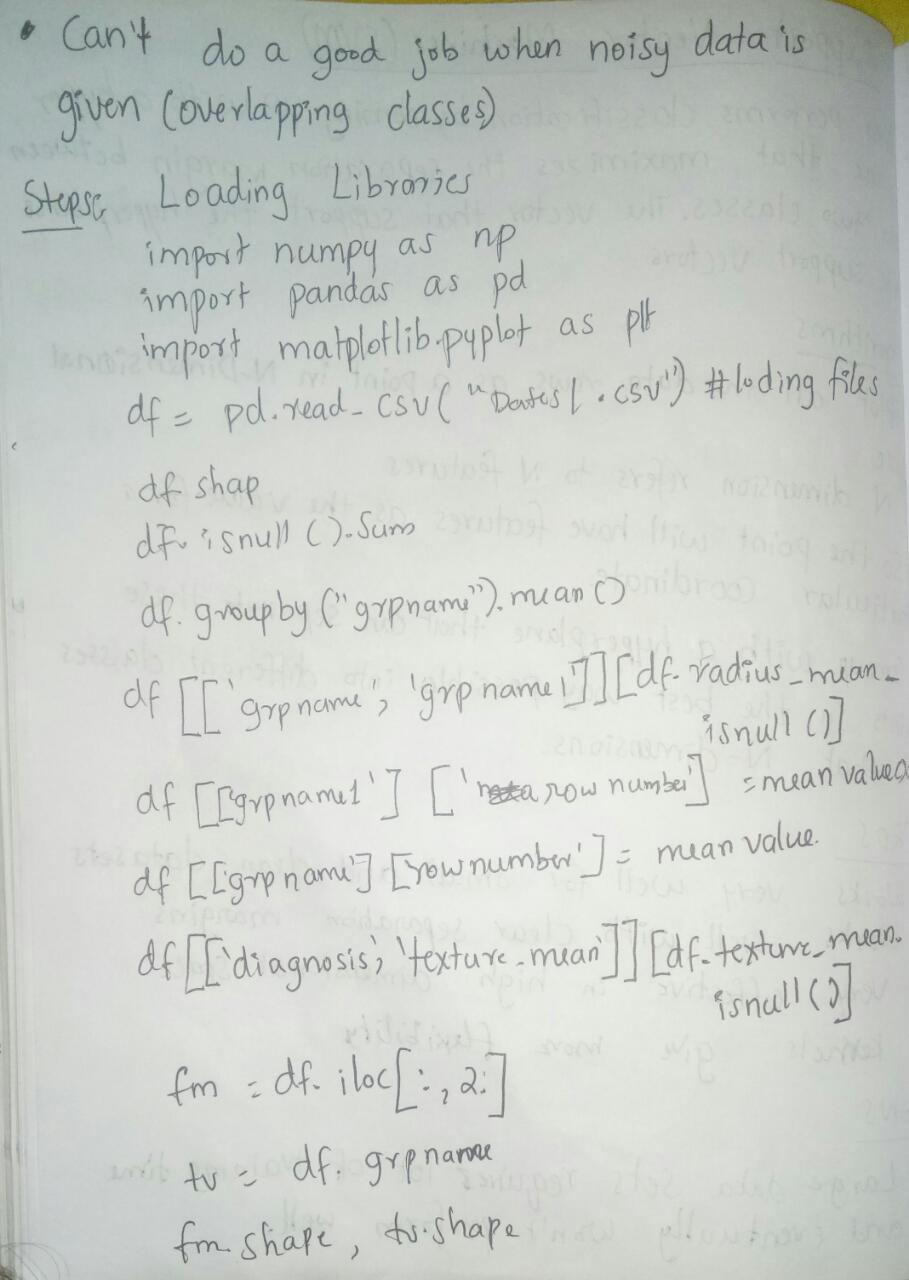 • Can't do a good job when noisy data is
given (overlapping classes)
Steps: Loading Libraries
import numpy as np
import pandas as pd
import matplotlib.pyplot as plt
df = pd.read_csv("Dates[.csv") #loding files
df shap
df. isnull().Sum
df. groupby("grpname").mean()
df [['grpname', 'grpname1']][df. radius_mean.
isnull()]
df [['grpname1'] ['row number'] = mean value
df [['grpname'] [rownumber'] = mean value.
df [['diagnosis', 'texture_mean']] [df.texture_mean.
isnull()]
fm = df. iloc[:, 2:]
tv = df. grpname
fm. shape, tv.shape